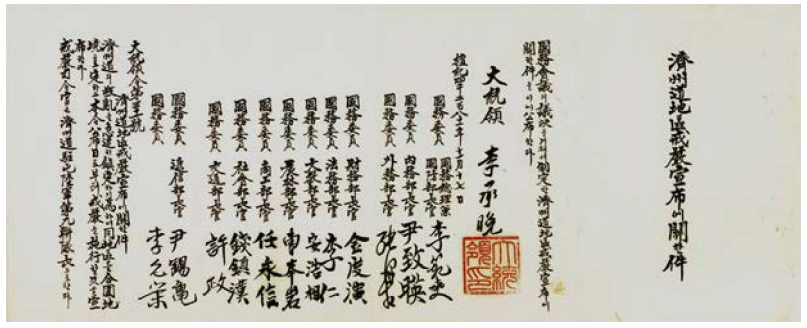 濟州道地區戒嚴宣布에關한件
國務會議의議決을거쳐서制定한濟州道地區戒嚴宣布에
關한件을이에公布한다
大統領 李承晩
大統領印
檀紀四二八一年十一月十七日
國務委員 國務總理兼國防部長官 李範奭
國務委員 內務部長官 尹致暎
國務委員 外務部長官 張澤相
國務委員 財務部長官 金度演
國務委員 法務部長官 李仁
國務委員 文敎部長官 安浩相
國務委員 農林部長官 曺奉岩
國務委員 商工部長官 任永信
國務委員 社會部長官 錢鎭漢
國務委員 交通部長官 許政
國務委員 遞信部長官 尹錫龜
國務委員 李允榮
大統領令第三十一號
濟州道地區戒嚴宣布에關한件
濟州道의叛亂을急速히鎭定하기爲하여同地區를合圍地
境으로定하고本令公布日로부터戒嚴을施行할것을宣
布한다
戒嚴司令官은濟州道駐屯陸軍第九聯隊長으로한다